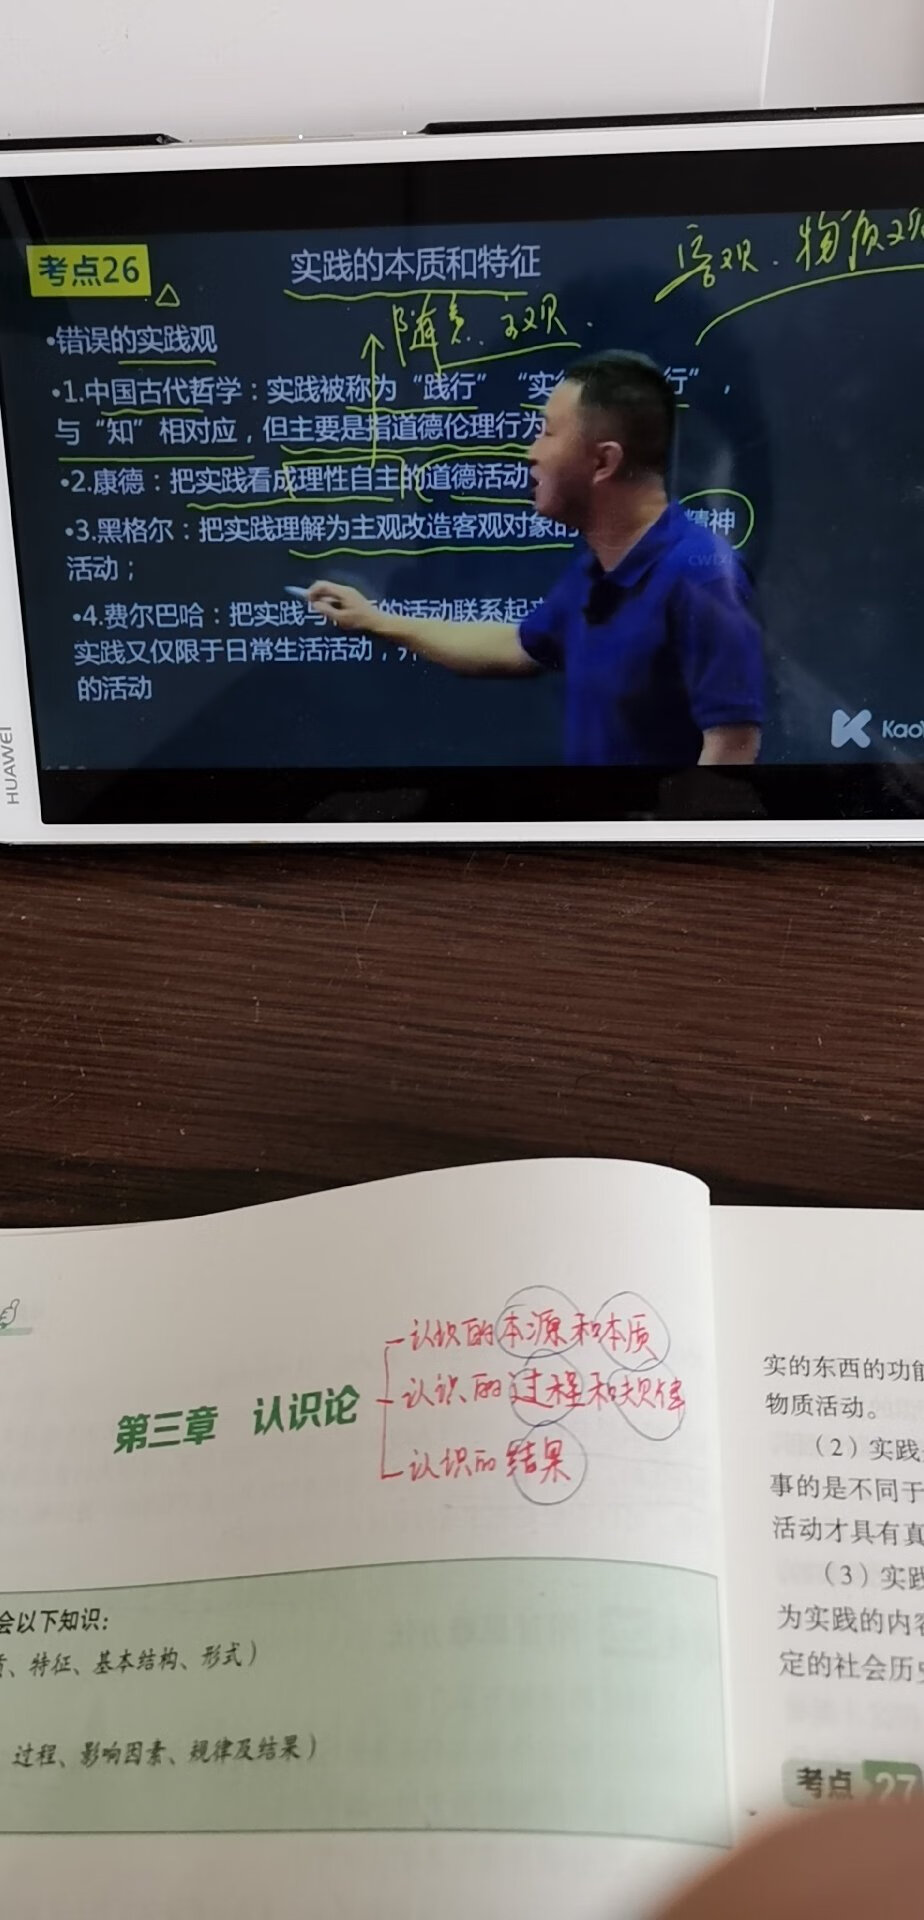 考点26
实践的本质和特征
客观、物质观
随意、主观.
•错误的实践观
•1.中国古代哲学：实践被称为“践行”“实 行”，
与“知”相对应，但主要是指道德伦理行为
•2.康德：把实践看成理性自主的道德活动
•3.黑格尔：把实践理解为主观改造客观对象的 精神
活动；
•4.费尔巴哈：把实践与 的活动联系起
实践又仅限于日常生活活动，
的活动
HUAWEI
第三章 认识论
认识的本源和本质
认识的过程和规律
认识的结果
会以下知识：
、特征、基本结构、形式）
过程、影响因素、规律及结果）
实的东西的功能
物质活动。
（2）实践
事的是不同于
活动才具有真
（3）实践
为实践的内容
定的社会历史
考点 27